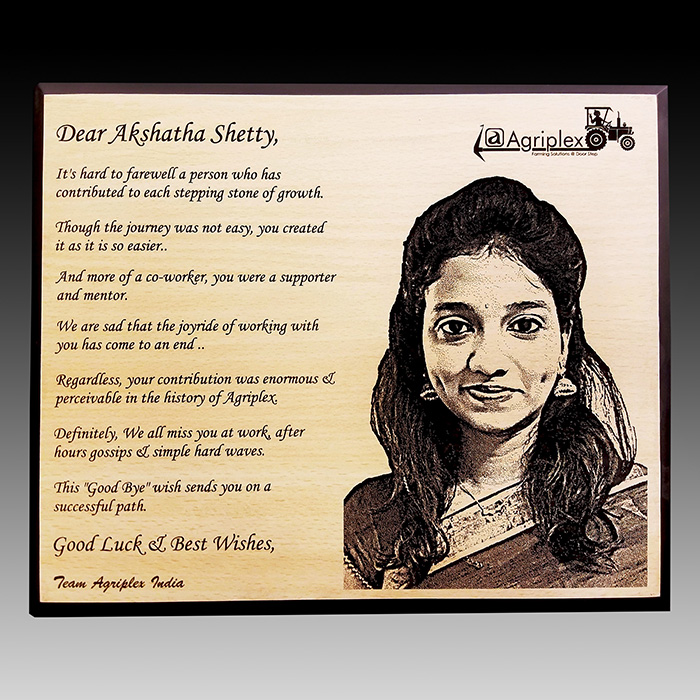 Dear Akshatha Shetty,
@Agriplex
Farming Solutions @ Door Step
It's hard to farewell a person who has
contributed to each stepping stone of growth.
Though the journey was not easy, you created
it as it is so easier..
And more of a co-worker, you were a supporter
and mentor.
We are sad that the joyride of working with
you has come to an end ..
Regardless, your contribution was enormous &
perceivable in the history of Agriplex.
Definitely, We all miss you at work, after
hours gossips & simple hard waves.
This "Good Bye" wish sends you on a
successful path.
Good Luck & Best Wishes,
Team Agriplex India